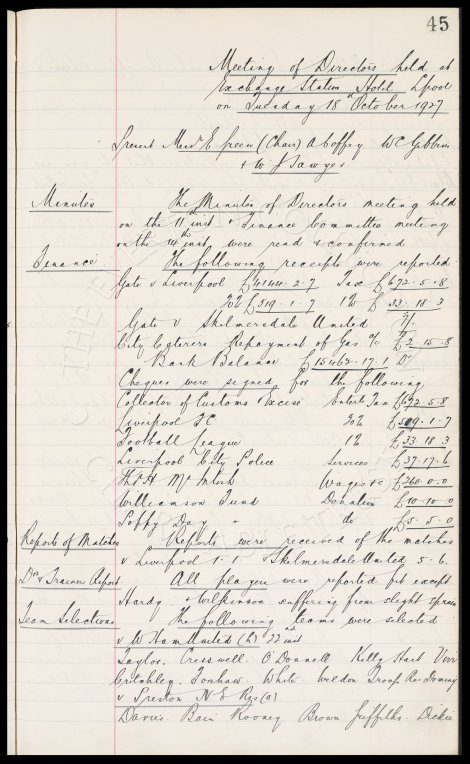 45
Meeting of Directors held at
Exchange Station Hotel Lpool
on Tuesday 18th October 1927
Present Messrs E Green (Chair) A Coffey W C Gibbins
& W J Sawyer
Minutes The Minutes of Directors meeting held
on the 11th inst & Finance Committee meeting
on the 14th inst were read & confirmed
Finance The following receipts were reported
Gate v Liverpool £4144.2.7 Tax £672.5.8
20% £519.1.7 1% £33.18.3
Gate v Skelmersdale United
City Caterers Repayment of Gas a/c £2.15.8
Bank Balance £15462.17.1 Dr
Cheques were signed for the following
Collector of Customs & Excise Entert Tax £672.5.8
Liverpool FC 20% £519.1.7
Football League 1% £33.18.3
Liverpool City Police Services £37.17.6
Thos H McIntosh Wages &c £260.0.0
Williamson Fund Donation £10.10.0
Poppy Day " do £5.5.0
Reports of Matches Reports were received of the matches
v Liverpool 1.1. & Skelmersdale United 5.6.
Dr & Trainers Report All players were reported fit except
Hardy & Wilkinson suffering from slight sprain
Team Selections The following teams were selected
v W Ham United (h) 22nd inst
Taylor. Cresswell. O'Donnell Kelly Hart Virr
Critchley. Forshaw. White Weldon Troup. Res Dominy
v Preston N E Res (a)
Davies. Bain Rooney Brown Griffiths. Dickie